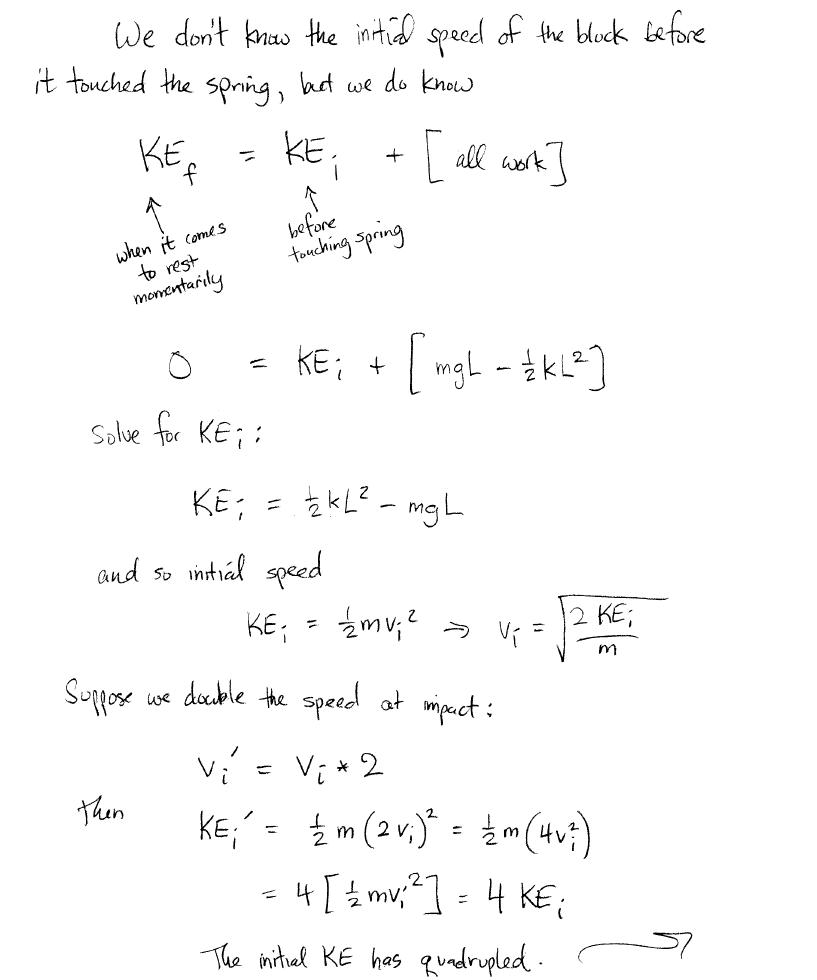 We don't know the initial speed of the block before
it touched the spring, but we do know
KE_f = KE_i + [all work]
↑ when it comes to rest momentarily
↑ before touching spring
0 = KE_i + [mgL - ½kL²]
Solve for KE_i:
KE_i = ½kL² - mgL
and so initial speed
KE_i = ½mv_i² ⇒ v_i = √(2 KE_i / m)
Suppose we double the speed at impact:
v_i' = v_i * 2
then KE_i' = ½m(2v_i)² = ½m(4v_i²)
= 4[½mv_i²] = 4 KE_i
The initial KE has quadrupled. →